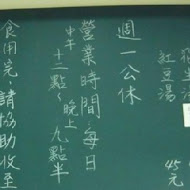 紅豆湯
45元
週一公休
營業時間每日
中午十二點~晚上九點半
食用完請協助收至